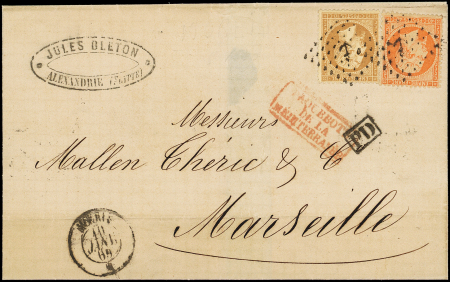 JULES BLETON
ALEXANDRIE (EGYPTE)
PAQUEBOTS
DE LA
MEDITERRANEE
PD
Messieurs
Mallen Théric & Cie
Marseille
JANV.